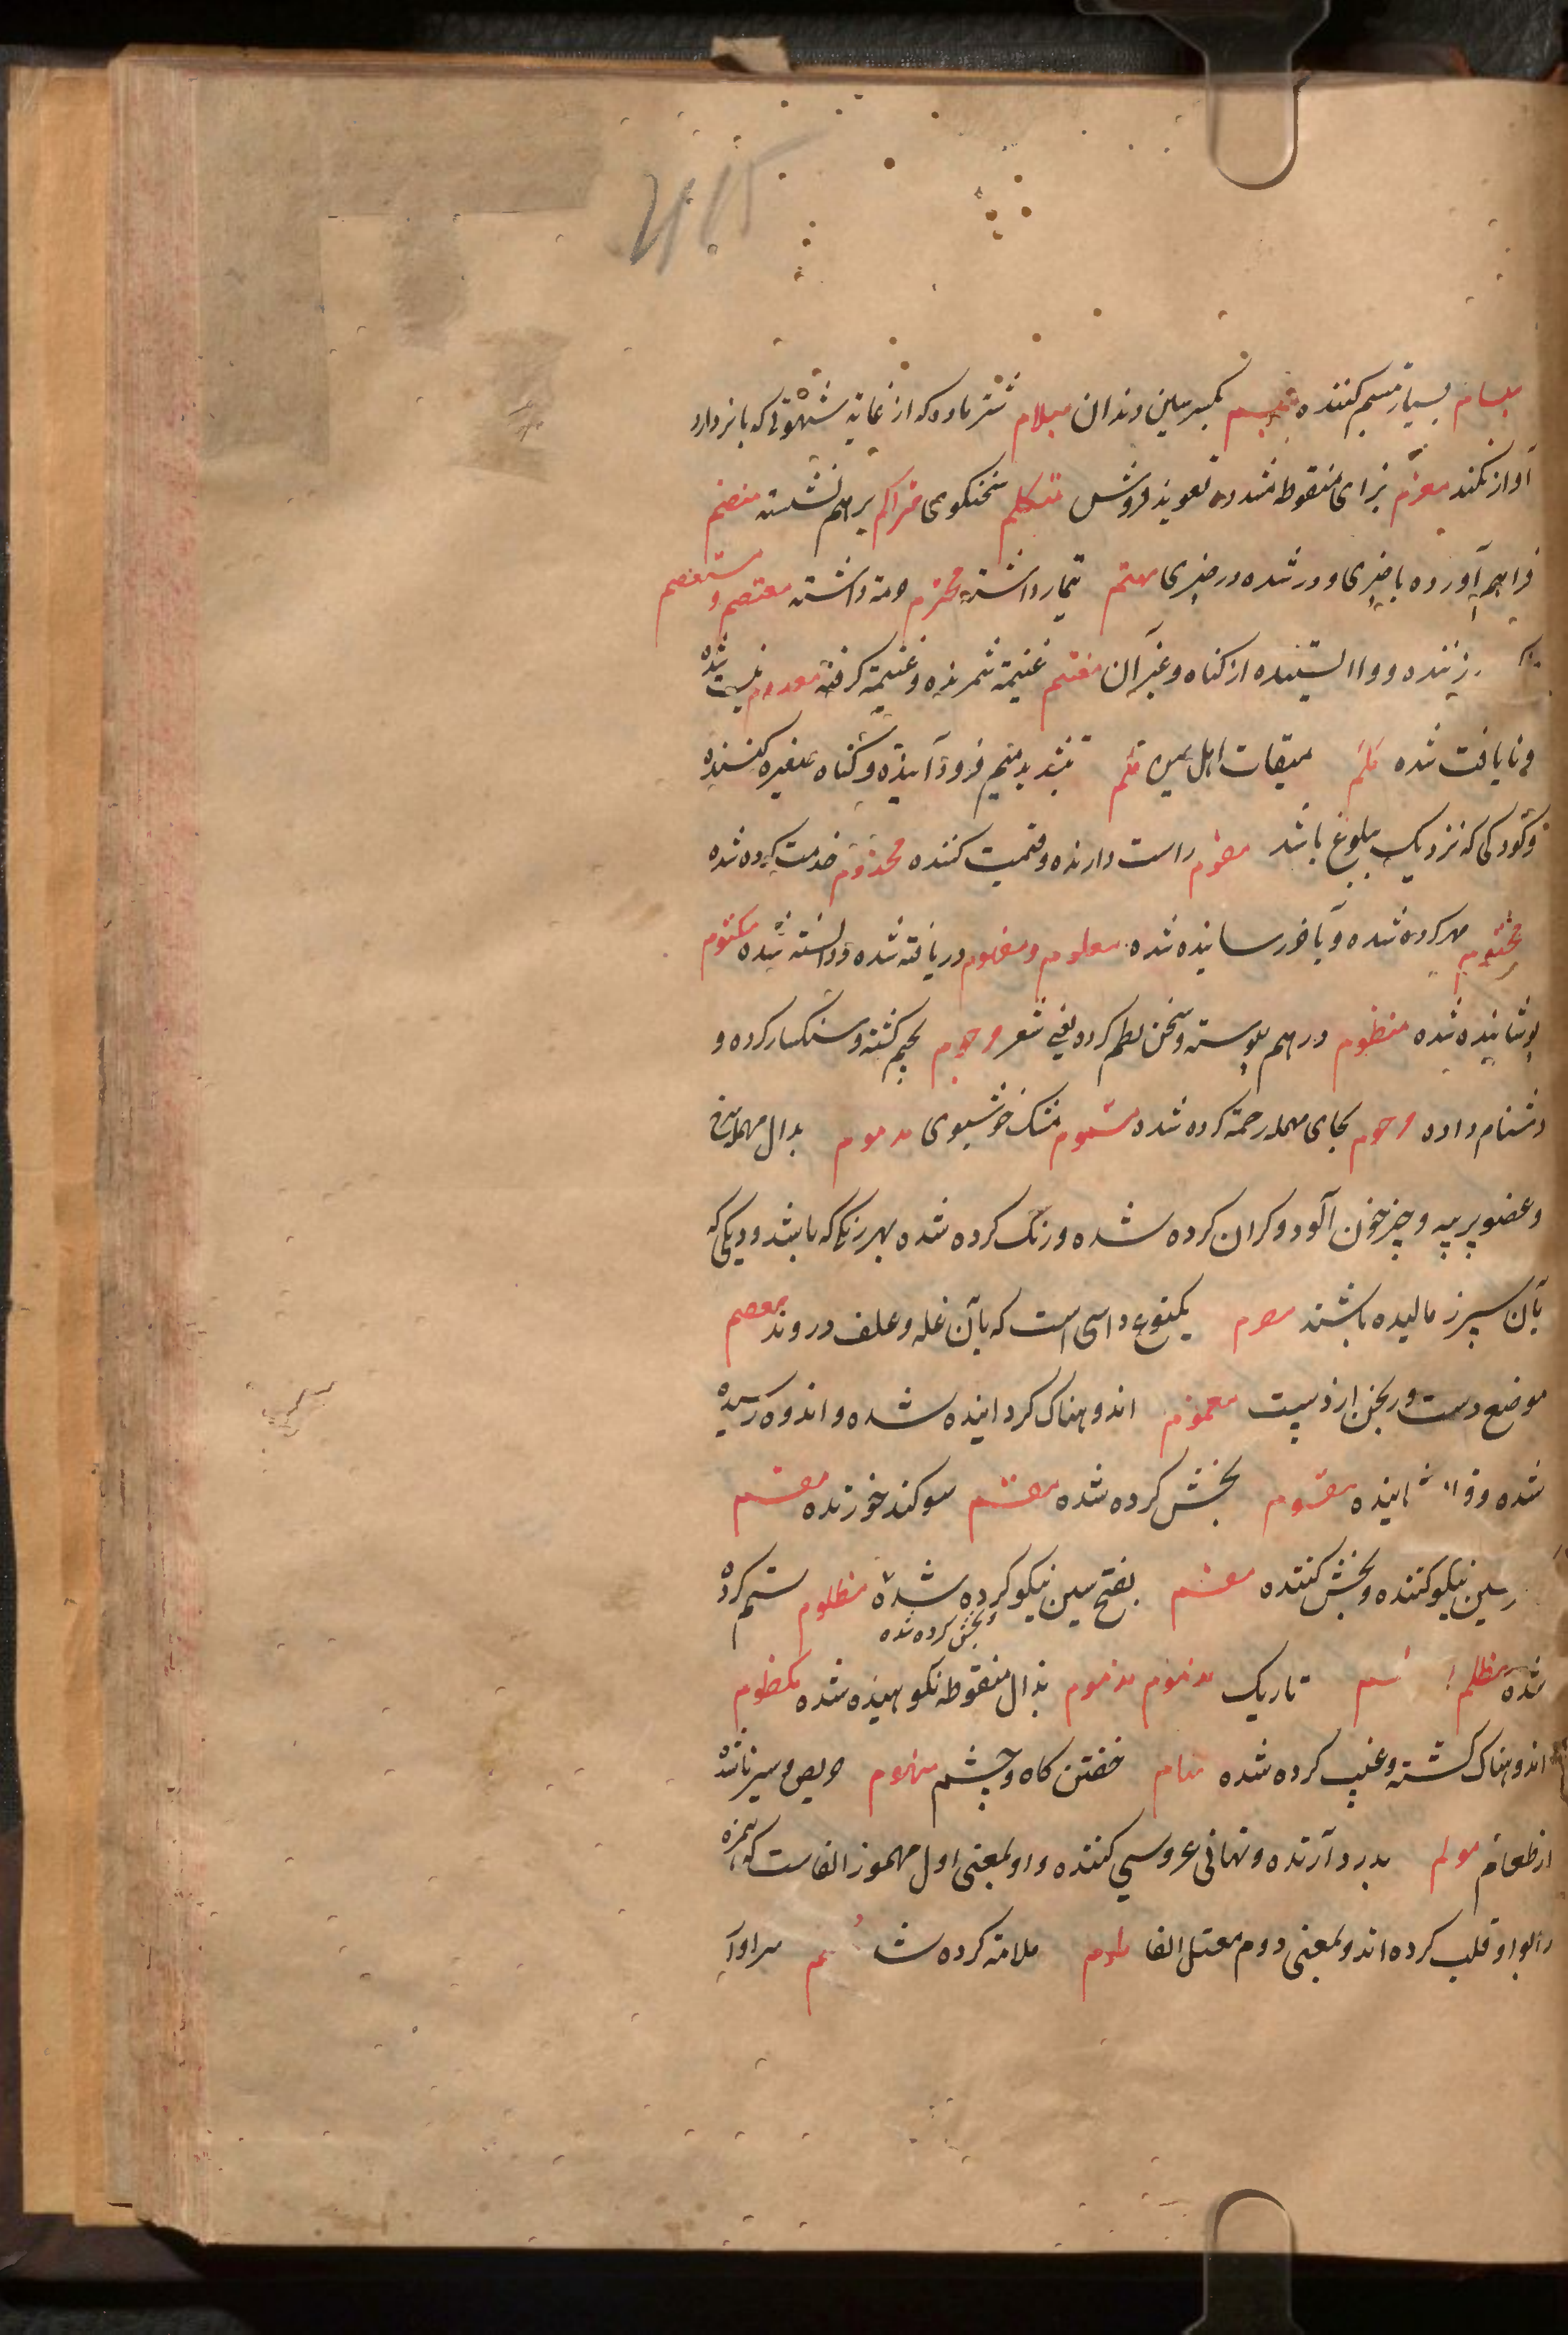 415
مبسام بسیار تبسم کننده مبسم بکسر سین دندان مبلام شتر ماده که از غایة شهوتی که بانر دارد
آواز نکند معزم بزای منقوط مشدده تعویذ فروش متکلم سخنکوی متراکم بر هم نشسته منضم
فراهم آورده با چیزی و در شده در چیزی مهتم تیمار داشته محترم حرمة داشته معتصم و مستعصم
و وا ایستنده از کناه و غیر آن مغتنم غنیمة شمرنده و غنیمة کرفته معدوم نیست شده
و نایافت شده یلملم میقات اهل یمن ملم بتشدید میم فرود آینده و کناه صغیره کننده
و کودکی که نزدیک ببلوغ باشد مقوم راست دارنده و قیمت کننده مخدوم خدمت کرده شده
مختوم مهر کرده شده و بآخر رسانیده شده معلوم و مفهوم دریافته شده و دانسته شده مکتوم
پوشانیده شده منظوم در هم پیوسته و سخن نظم کرده یعنی شعر مرجوم بجیم کشته و سنکسار کرده و
دشنام داده مرحوم بحای مهمله رحمة کرده شده مشموم مشک خوشبوی مدموم بدال مهمله سرخ
و عضو پر پیه و چیز خون آلود و کران کرده شده و رنک کرده شده بهر رنکی که باشد و دیکی که
بآن سپرز مالیده باشند مصرم یکنوع داسی است که بآن غله و علف دروند معصم
موضع دست ورنجن از دست مغموم اندوهناک کردانیده شده و اندوه رسیده
شده مقسوم بخش کرده شده مقسم سوکند خورنده مقسم
سین نیکو کننده و بخش کننده مقسم بفتح سین نیکو کرده شده و بخش کرده شده مظلوم ستم کرده
شده مظلم تاریک مذموم مذموم بذال منقوطه نکوهیده شده مکظوم
اندوهناک کشته و غضب کرده شده منام خفتن کاه و چشم منهوم حریص و سیر ناشده
از طعام مولم بدرد آرنده و مهمانی عروسی کننده و او بمعنی اول مهموز الفاست که همزه
را بواو قلب کرده اند و بمعنی دوم معتل الفا ملوم ملامة کرده سزاوار